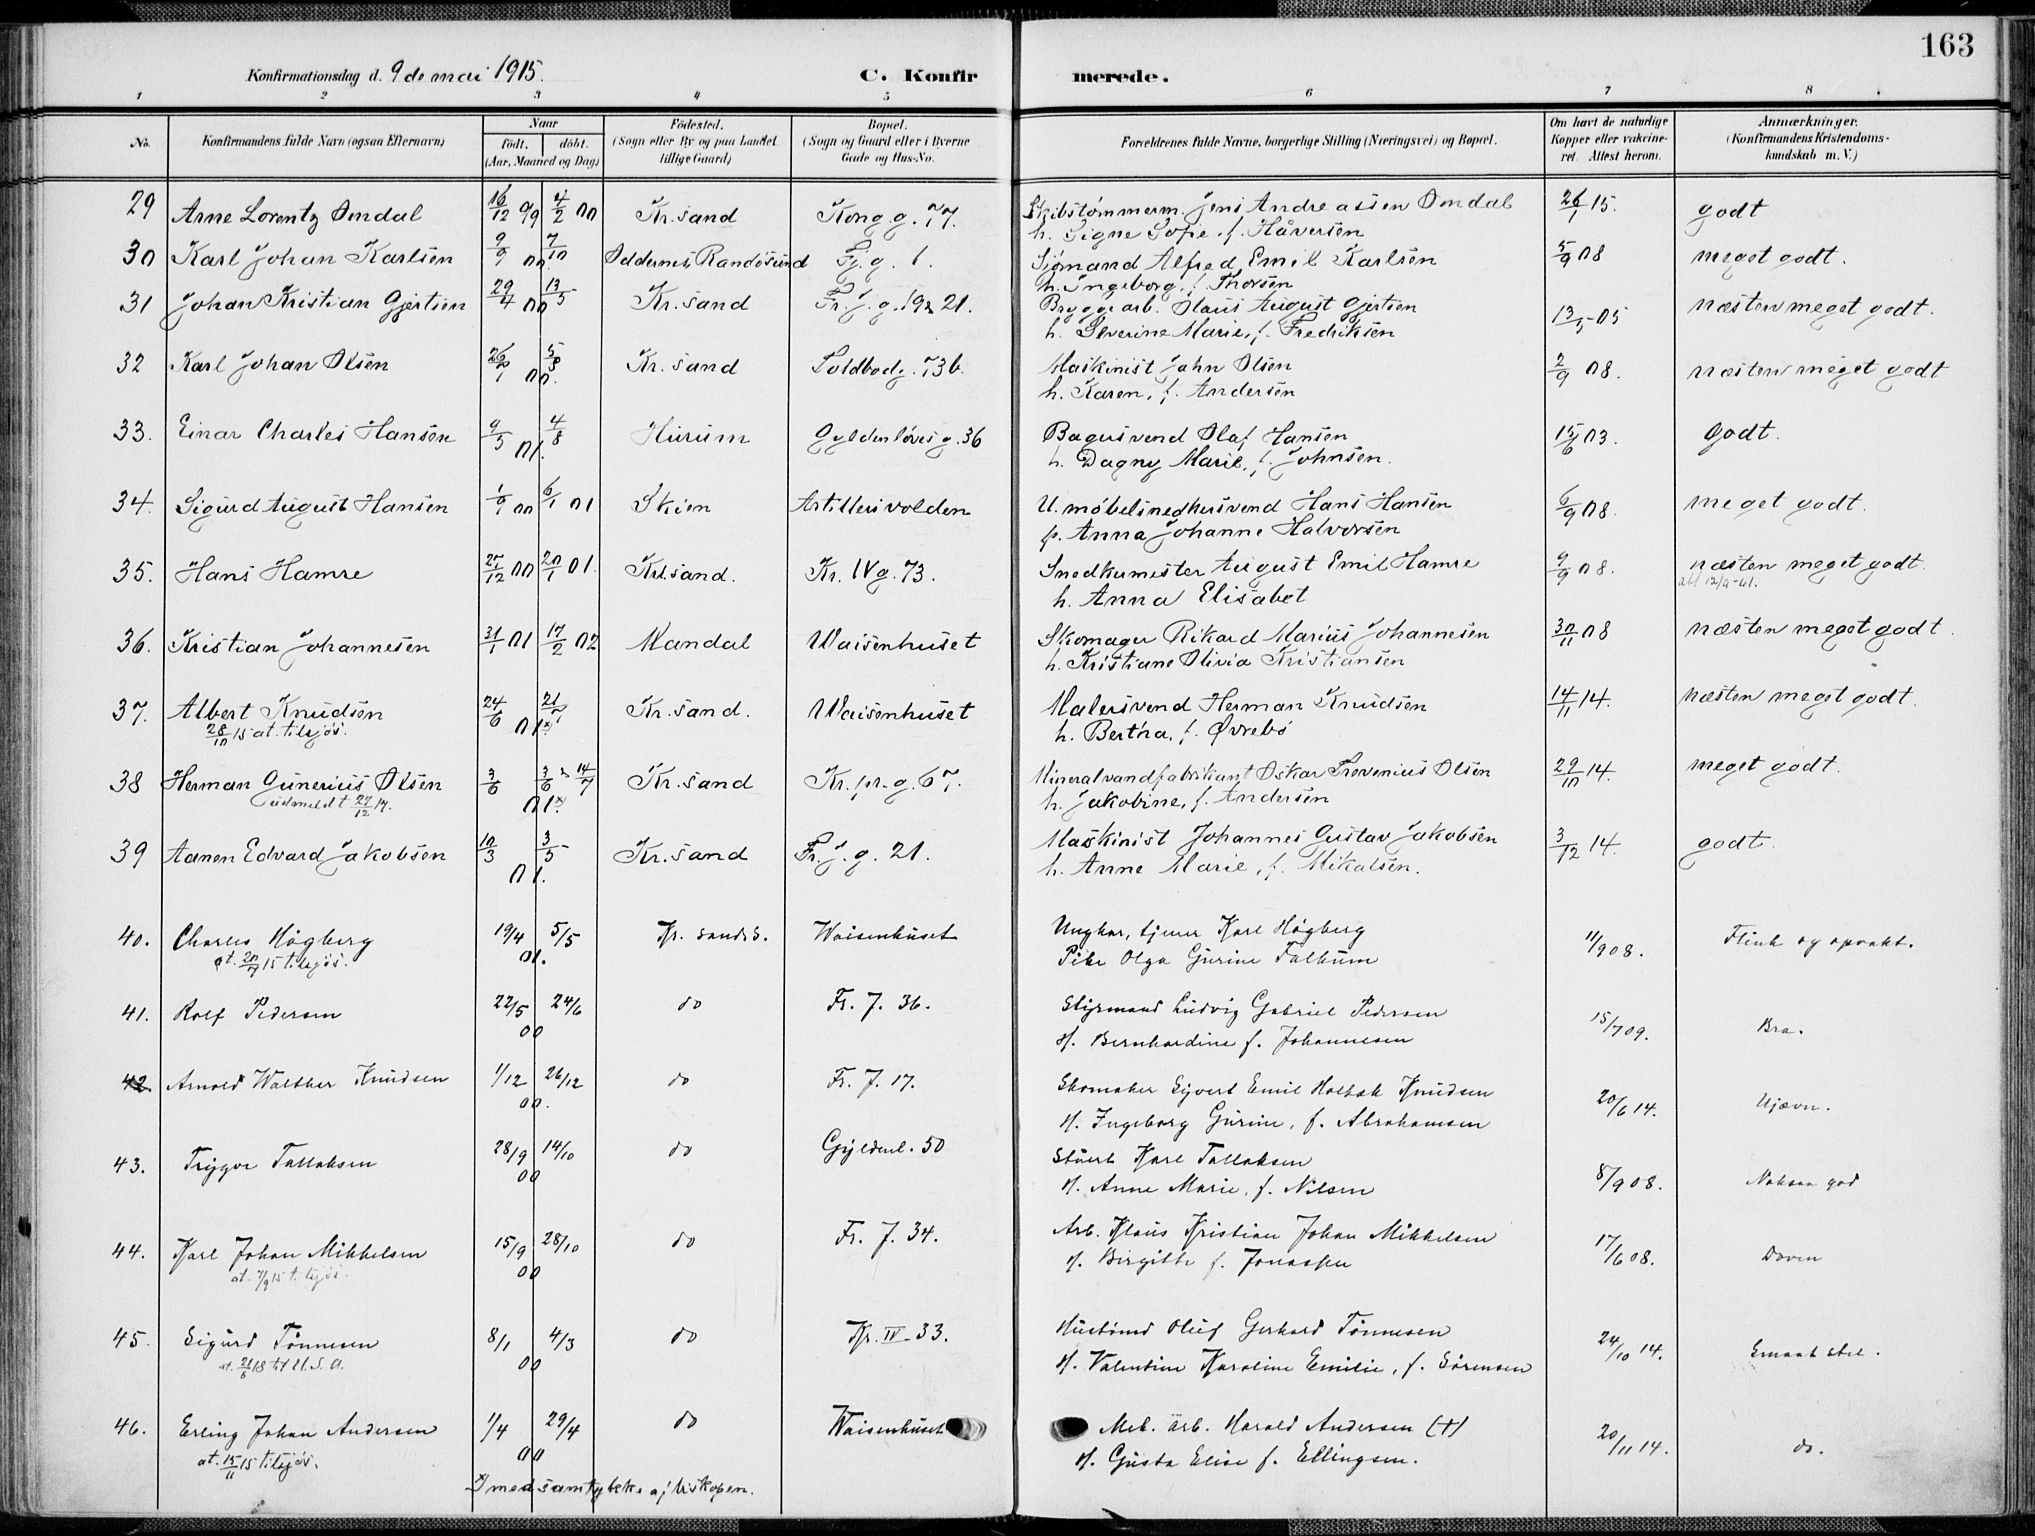 163
Konfirmationsdag d. 9de mai 1915.
C. Konfirmerede.
1 2 3 4 5 6 7 8
No. Konfirmandens fulde Navn (ogsaa Efternavn) Naar födt. döbt. (Aar, Maaned og Dag) Födested. (Sogn eller By og paa Landet tillige Gaard) Bopæl. (Sogn og Gaard eller i Byerne Gade og Hus-No. Forældrenes fulde Navne, borgerlige Stilling (Næringsvei) og Bopæl. Om havt de naturlige Kopper eller vakcineret. Attest herom. Anmærkninger. (Konfirmandens Kristendomskundskab m. V.)
29 Arne Lorentz Omdal 16/12 99 4/2 00 Kr.sand Kong g. 77. Skibstømmerm. Jens Andreassen Omdal 26/1 15. godt
h. Signe Sofie, f. Håversen
30 Karl Johan Karlsen 9/9 00 7/10 Oddernes, Randøsund 1. Sjømand Alfred Emil Karlsen 5/9 08 meget godt.
h. Ingeborg, f. Thorsen
31 Johan Kristian Gjertsen 29/4 00 13/5 Kr.sand Fr. J. g. 19 21. Bryggearb. Olaus August Gjertsen 13/5 05 næsten meget godt.
h. Severine Marie, f. Fredriksen
32 Karl Johan Olsen 26/1 00. 5/3 Kr.sand Soldbodg. 73b. Maskinist John Olsen 2/9 08. næsten meget godt
h. Karen, f. Andersen
33. Einar Charles Hansen 9/5 01. 4/8 Hurum Gyldenløvesg. 36 Bagersvend Olaf Hansen 15/6 03. Godt.
h. Dagny Marie, f. Johnsen.
34. Sigurd August Hansen 1/9 00 6/1 01 Skien Artillerivolden U. møbelsnedkersvend Hans Hansen 6/9 08. meget godt.
p. Anna Johanne Halvorsen
35. Hans Hamre 25/12 00 20/1 01. Kr.sand. Kr. IV g. 73. Snedkermester August Emil Hamre 9/9 08. næsten meget godt.
h. Anna Elisabet
36. Kristian Johannesen 31/1 01 17/2 02 Mandal Waisenhuset Skomager Rikard Marius Johannesen 30/11 08 næsten meget godt.
h. Kristiane Olivia Kristiansen
37. Albert Knudsen 24/6 21/7 01 x) Kr.sand. Waisenhuset Malersvend Herman Knudsen 14/11 14. næsten meget godt.
28/10 15 at. tilsjøs. h. Bertha, f. Øvrebø
38 Herman Gunerius Olsen 3/6 3/6 14/7 01 x) Kr.sand Kr. pr. g. 67. Mineralvandfabrikant Oskar Provenius Olsen 29/10 14. meget godt.
udmeldt 27/12 14. h. Jakobine, f. Andersen
39 Aanen Edvard Jakobsen 10/3 3/5 01. Kr.sand Fr. J. g. 21. Maskinist Johannes Gustav Jakobsen 3/12 14. godt.
h. Anne Marie, f. Mikalsen.
40. Charles Högberg 19/4 5/5 01. Kr. sand S. Waisenhuset Ungkar, tjener Karl Högberg 11/9 08. Flink og opvakt.
at. 20/7 15 tilsjøs. Pike Olga Gurine Falkum
41. Rolf Pedersen 22/5 24/6 00 do Fr. J. 36. Styrmand Ludvig Gabriel Pedersen 15/7 09. Bra.
H. Bernhardine f. Johannesen
42 Arnold Walther Knudsen 1/12 26/12 00. do Fr. J. 17. Skomaker Syvert Emil Holbæk Knudsen 20/6 14. Ujævn.
H. Ingeborg Gurine, f. Abrahamsen
43. Trygve Tallaksen 28/9 14/10 00 do Gyldenl. 50 Stuert Karl Tallaksen 8/9 08. Noksaa god
H. Anne Marie, f. Nilsen
44. Karl Johan Mikkelsen 15/9 28/10 00 do Fr. J. 34. Arb. Klaus Kristian Johan Mikkelsen 17/6 08. Doven
at. 7/9 15 t. sjøs. H. Birgitte f. Jonassen
45. Sigurd Tönnesen 8/1 4/3 00 do Kr. IV 33. Husbond Oluf Gerhard Tönnesen 24/10 14. Smaat stel.
at. 21/6 18 til U.S.A. H. Valentine Karoline Emilie, f. Sörensen
46. Erling Johan Andersen 1/4 29/4 00 do Waisenhuset Mek. arb. Harald Andersen (†) 20/11 14. do.
at. 15/11 15 tilsjøs. H. Gusta Elise f. Ellingsen.
x) med samtykke af biskopen.